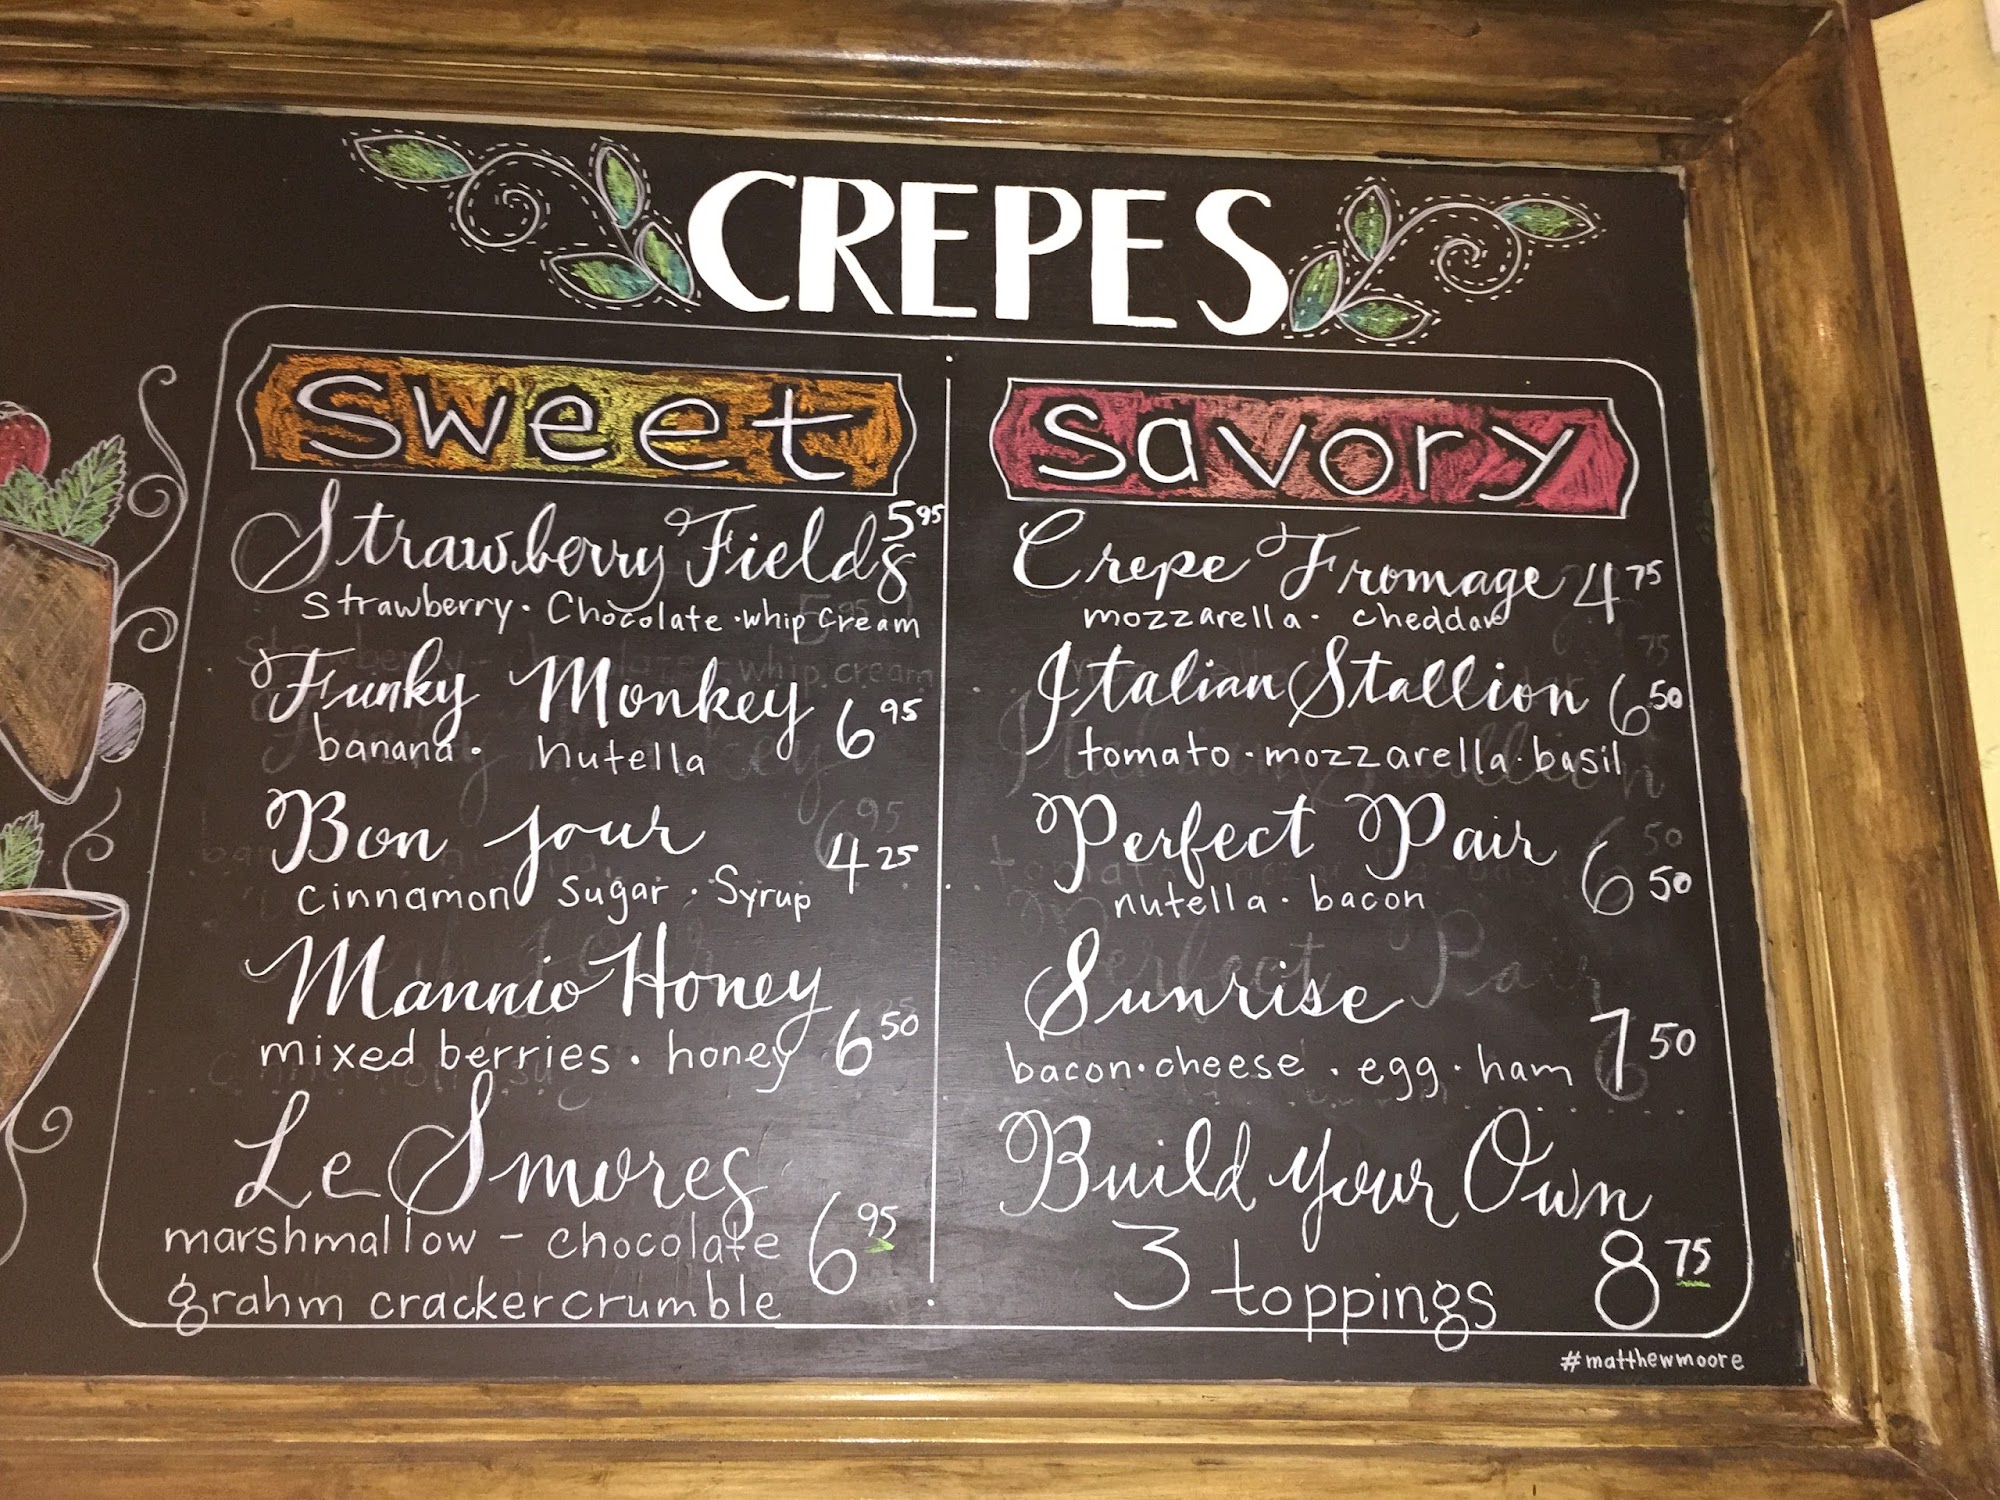 CREPES
sweet
Strawberry Fields 5 95
strawberry · Chocolate · whip cream
Funky Monkey 6 95
banana · nutella
Bon jour 4 25
cinnamon sugar · Syrup
Mannio Honey 6 50
mixed berries · honey
Le Smores
marshmallow - chocolate 6 95
grahm cracker crumble
savory
Crepe Fromage 4 75
mozzarella · cheddar
Italian Stallion 6 50
tomato · mozzarella · basil
Perfect Pair 6 50
nutella · bacon
Sunrise 7 50
bacon · cheese · egg · ham
Build your Own
3 toppings 8 75
#matthewmoore